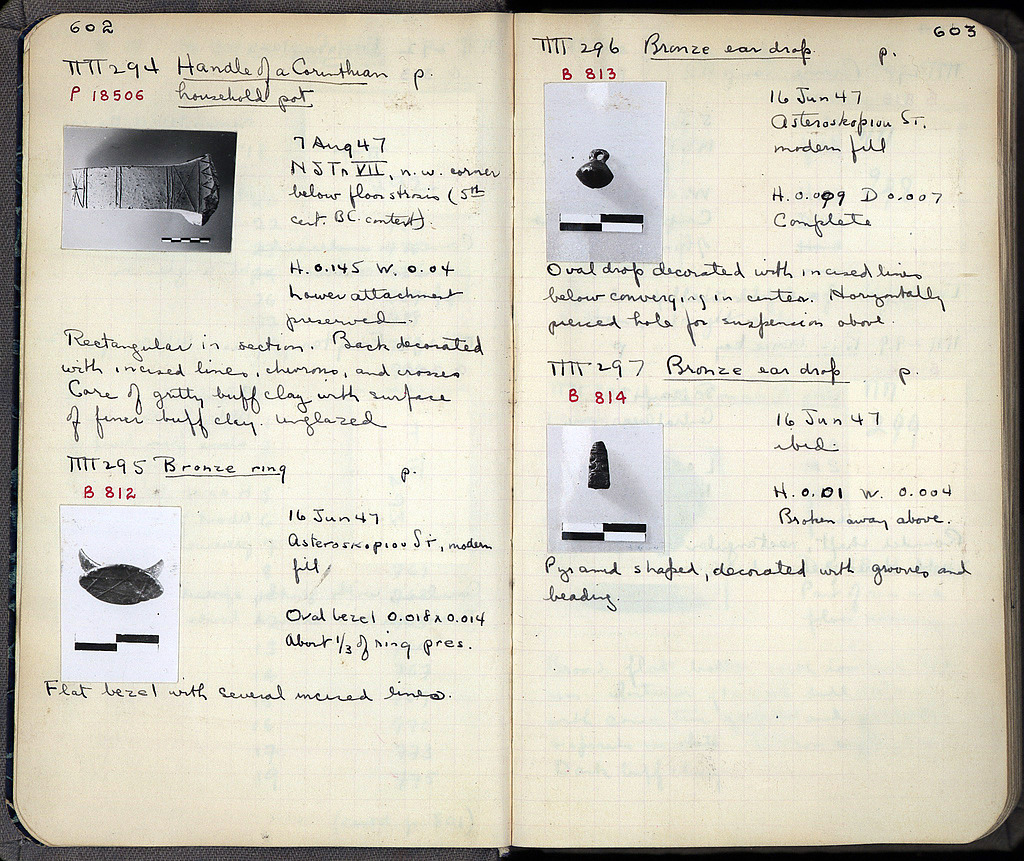 602
ΠΠ 294 Handle of a Corinthian p.
P 18506 household pot
7 Aug 47
NJTr VII, n.w. corner
below floor strosis (5th
cent. B.C. context).
H. 0.145 W. 0.04
Lower attachment
preserved.
Rectangular in section. Back decorated
with incised lines, chevrons, and crosses
Core of gritty buff clay with surface
of finer buff clay. unglazed
ΠΠ 295 Bronze ring p.
B 812
16 Jun 47
Asteroskopiou St, modern
fill
Oval bezel 0.018 x 0.014
About 1/3 of ring pres.
Flat bezel with several incised lines.
603
ΠΠ 296 Bronze ear drop. p.
B 813
16 Jun 47
Asteroskopiou St.
modern fill
H. 0.009 D 0.007
Complete
Oval drop decorated with incised lines
below converging in center. Horizontally
pierced hole for suspension above.
ΠΠ 297 Bronze ear drop p.
B 814
16 Jun 47
ibid.
H. 0.01 W. 0.004
Broken away above.
Pyramid shaped, decorated with grooves and
beading.